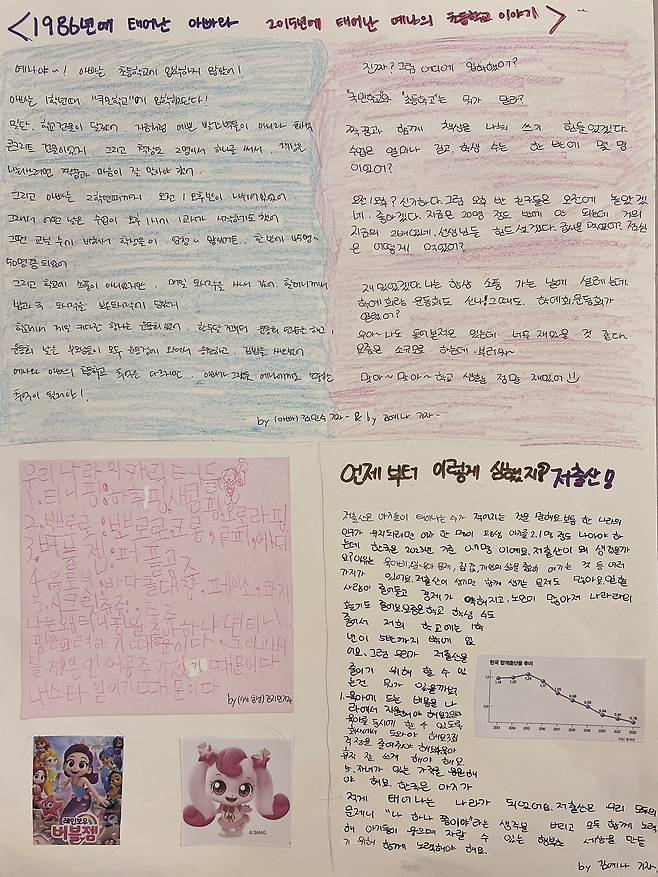 <1986년에 태어난 아빠와 2015년에 태어난 예나의 초등학교 이야기>
예나야~! 아빠는 초등학교에 입학하지 않았어!
아빠는 1학년때 "국민학교"에 입학했단다!
일단, 학교건물이 달랐어. 지금처럼 예쁜 벽이 아니라 회색
콘크리트 건물이었어. 그리고 책상도 2명이서 하나를 써서
짝꿍과 마음이 잘 맞아야 했어.
그리고 아빠는 2학년때까지 오전 오후반이 나뉘어있었어
그래서 어떤 날은 수업이 오후 1시에 1교시가 시작하기도 했어.
그땐 교실 수에 비해서 학생들이 엄청 많았거든. 한 반에 45명~
50명쯤 되었어.
그리고 학교에 급식이 아니었지만, 매일 도시락을 싸서 갔어. 할머니께서
학교에서 제일 커다란 행사는 운동회였어. 한두달 전부터 운동회 연습을 하고,
운동회 날은 부모님들이 모두 운동장에 와서 응원하고, 김밥을 싸먹었어.
예나와 아빠의 초등학교 추억은 다르지만,
추억이 있길바라!
진짜? 그럼 어디에 입학했어?
"국민학교"와 "초등학교"는 뭐가 달라?
짝꿍과 함께 책상을 나눠 쓰기 힘들었겠다.
수업은 얼마나 길고, 학생 수는 한 반에 몇 명
이었어?
오전 오후? 신기하다. 그럼 오후 반 친구들은 오전에 놀았겠
네. 좋았겠다. 지금은 20명 정도 반에 안 되는데 거의
지금의 2배였네. 선생님들 힘드셨겠다. 급식은 먹었어? 점심
은 어떻게 먹었어?
재밌었겠다. 나는 항상 소풍 가는 날에 설레는데.
학예회랑 운동회도 신나! 그때도 학예회, 운동회가
있었어?
우아~ 나도 들어본적은 있는데 너무 재밌을 것 같다.
요즘은 소규모로 하는데. 부러워~
맞아~ 맞아~ 학교 생활 정말 재밌어
by (아빠) 김민수 기자 - & by 김예나 기자 -
우리나라의 캐릭터들
1.티니핑:하츄핑,사람핑,로라핑
2.뽀로로:뽀로로,크롱,루피,에디
3.버블젬:퍼플공주
5.시크릿쥬쥬:쥬쥬
나는 왜 티니핑을 좋아하냐면 티니
핑은 화려하기 때문이다. 그리고 버
블젬은 인어공주가 있기 때문이다.
내 스타일이기 때문이다
레인보우
버블젬
© SAMG
언제부터 이렇게 심했지? 저출산!!
저출산은 아기들이 태어나는 수가 적어지는 것을 말해요. 보통 한 나라의
인구가 유지되려면 여자 한 명이 평생 아기를 2.1명 정도 낳아야 하
는데 한국은 2023년 기준 0.72명 이에요. 저출산이 왜 생겼을까
가지가 있어요. 저출산이 생기면 함께 생기는 문제도 많아요. 일할
사람이 줄어들고 경제가 약해지고, 노인이 많아져 나라라의
활기도 줄어요. 요즘은 학교 학생 수도
줄어서 저희 학교에는 1학
년이 5반까지 밖에 없
어요. 그럼 우리가 저출산을
줄이기 위해 할 수 있
는건 뭐가 있을까요?
1. 육아에 드는 비용을 나
라에서 지원해야 해요. 2.일과
육아를 동시에 할 수 있도록
회사에서 도와야 해요. 3.집
걱정을 줄여주어야 해요.
휴직 잘 쓰게 해야 해요.
5. 자녀가 있는 가정을 응원해
야 해요. 한국은 아기가
적게 태어나는 나라가 되었어요. 저출산은 우리 모두의
문제니 "나 하나 쯤이야"라는 생각을 버리고 모두 함께 노력
해 아기들이 웃으며 자랄 수 있는 행복한 세상을 만들
기 위해 함께 노력해야 해요.
by 김예나 기자.
한국 합계출산율 추이